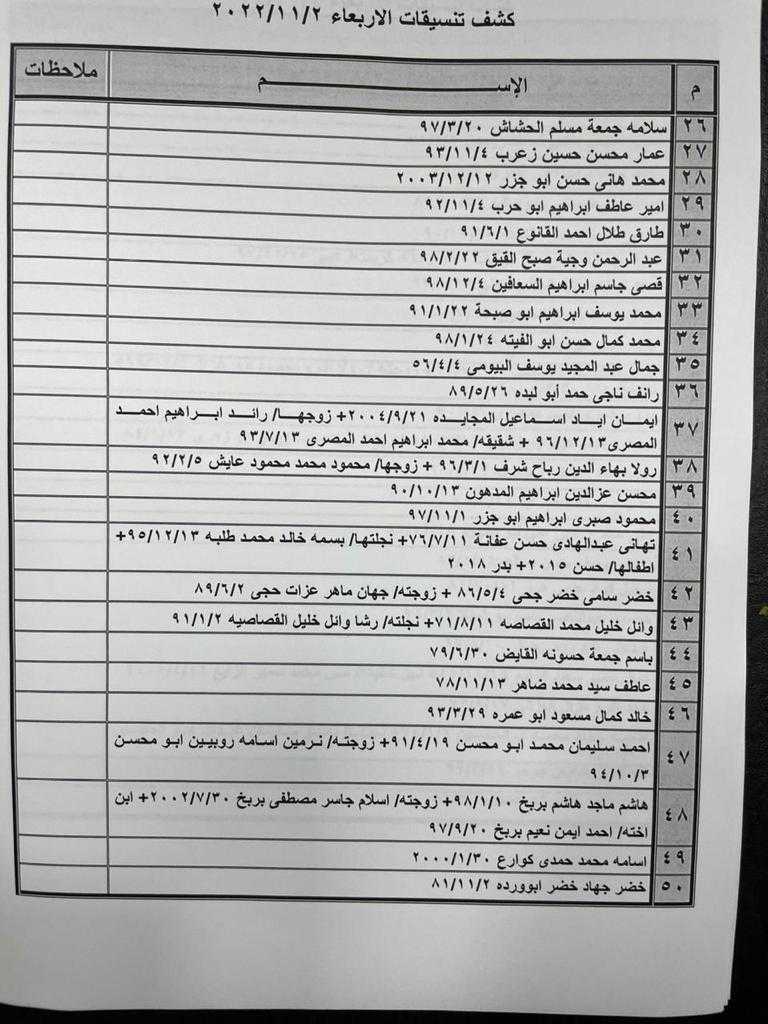 كشف تنسيقات الاربعاء ٢٠٢٢/١١/٢
م الإســـــــــــم ملاحظات
٢٦ سلامه جمعة مسلم الحشاش ٩٧/٣/٢٠
٢٧ عمار محسن حسين زعرب ٩٣/١١/٤
٢٨ محمد هانى حسن ابو جزر ٢٠٠٣/١٢/١٢
٢٩ امير عاطف ابراهيم ابو حرب ٩٢/١١/٤
٣٠ طارق طلال احمد القانوع ٩١/٦/١
٣١ عبد الرحمن وجية صبح القيق ٩٨/٢/٢٢
٣٢ قصى جاسم ابراهيم السعافين ٩٨/١٢/٤
٣٣ محمد يوسف ابراهيم ابو صبحة ٩١/١/٢٢
٣٤ محمد كمال حسن ابو الفيته ٩٨/١/٢٤
٣٥ جمال عبد المجيد يوسف البيومى ٥٦/٤/٤
٣٦ رانف ناجى حمد أبو لبده ٨٩/٥/٢٦
٣٧ ايمـــان ايـاد اسـماعيل المجايـده ٢٠٠٤/٩/٢١+ زوجهـا/ رائـد ابـراهيم احمـد
المصرى ٩٦/١٢/١٣ + شقيقه/ محمد ابراهيم احمد المصرى ٩٣/٧/١٣
٣٨ رولا بهاء الدين رباح شرف ٩٦/٣/١ + زوجها/ محمود محمد محمود عايش ٩٢/٢/٥
٣٩ محسن عزالدين ابراهيم المدهون ٩٠/١٠/١٣
٤٠ محمود صبرى ابراهيم ابو جزر ٩٧/١١/١
٤١ تهانى عبدالهادى حسن عفانة ٧٦/٧/١١+ نجلتها/ بسمه خالد محمد طلبه ٩٥/١٢/١٣+
اطفالها/ حسن ٢٠١٥+ بدر ٢٠١٨
٤٢ خضر سامى خضر جحى ٨٦/٥/٤ + زوجته/ جهان ماهر عزات حجى ٨٩/٦/٢
٤٣ وائل خليل محمد القصاصه ٧١/٨/١١+ نجلته/ رشا وائل خليل القصاصيه ٩١/١/٢
٤٤ باسم جمعة حسونه القايض ٧٩/٦/٣٠
٤٥ عاطف سيد محمد ضاهر ٧٨/١١/١٣
٤٦ خالد كمال مسعود ابو عمره ٩٣/٣/٢٩
٤٧ احمد سليمان محمد ابو محسن ٩١/٤/١٩+ زوجته/ نرمين اسامه روبيين ابو محسن
٩٤/١٠/٣
٤٨ هاشم ماجد هاشم بربخ ٩٨/١/١٠+ زوجته/ اسلام جاسر مصطفى بربخ ٢٠٠٢/٧/٣٠+ ابن
اخته/ احمد ايمن نعيم بربخ ٩٧/٩/٢٠
٤٩ اسامه محمد حمدى كوارع ٢٠٠٠/١/٣٠
٥٠ خضر جهاد خضر ابوورده ٨١/١١/٢